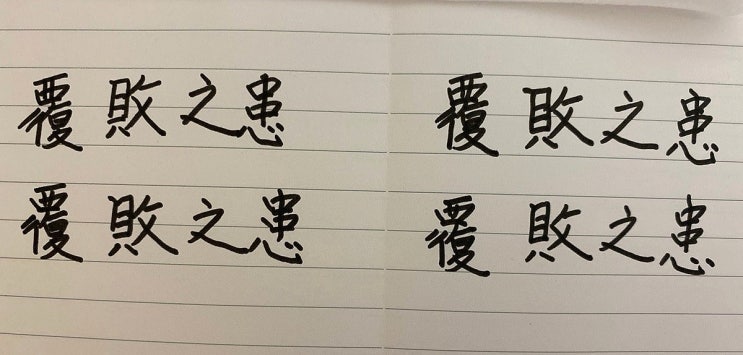 覆敗之患 覆敗之患
覆敗之患 覆敗之患